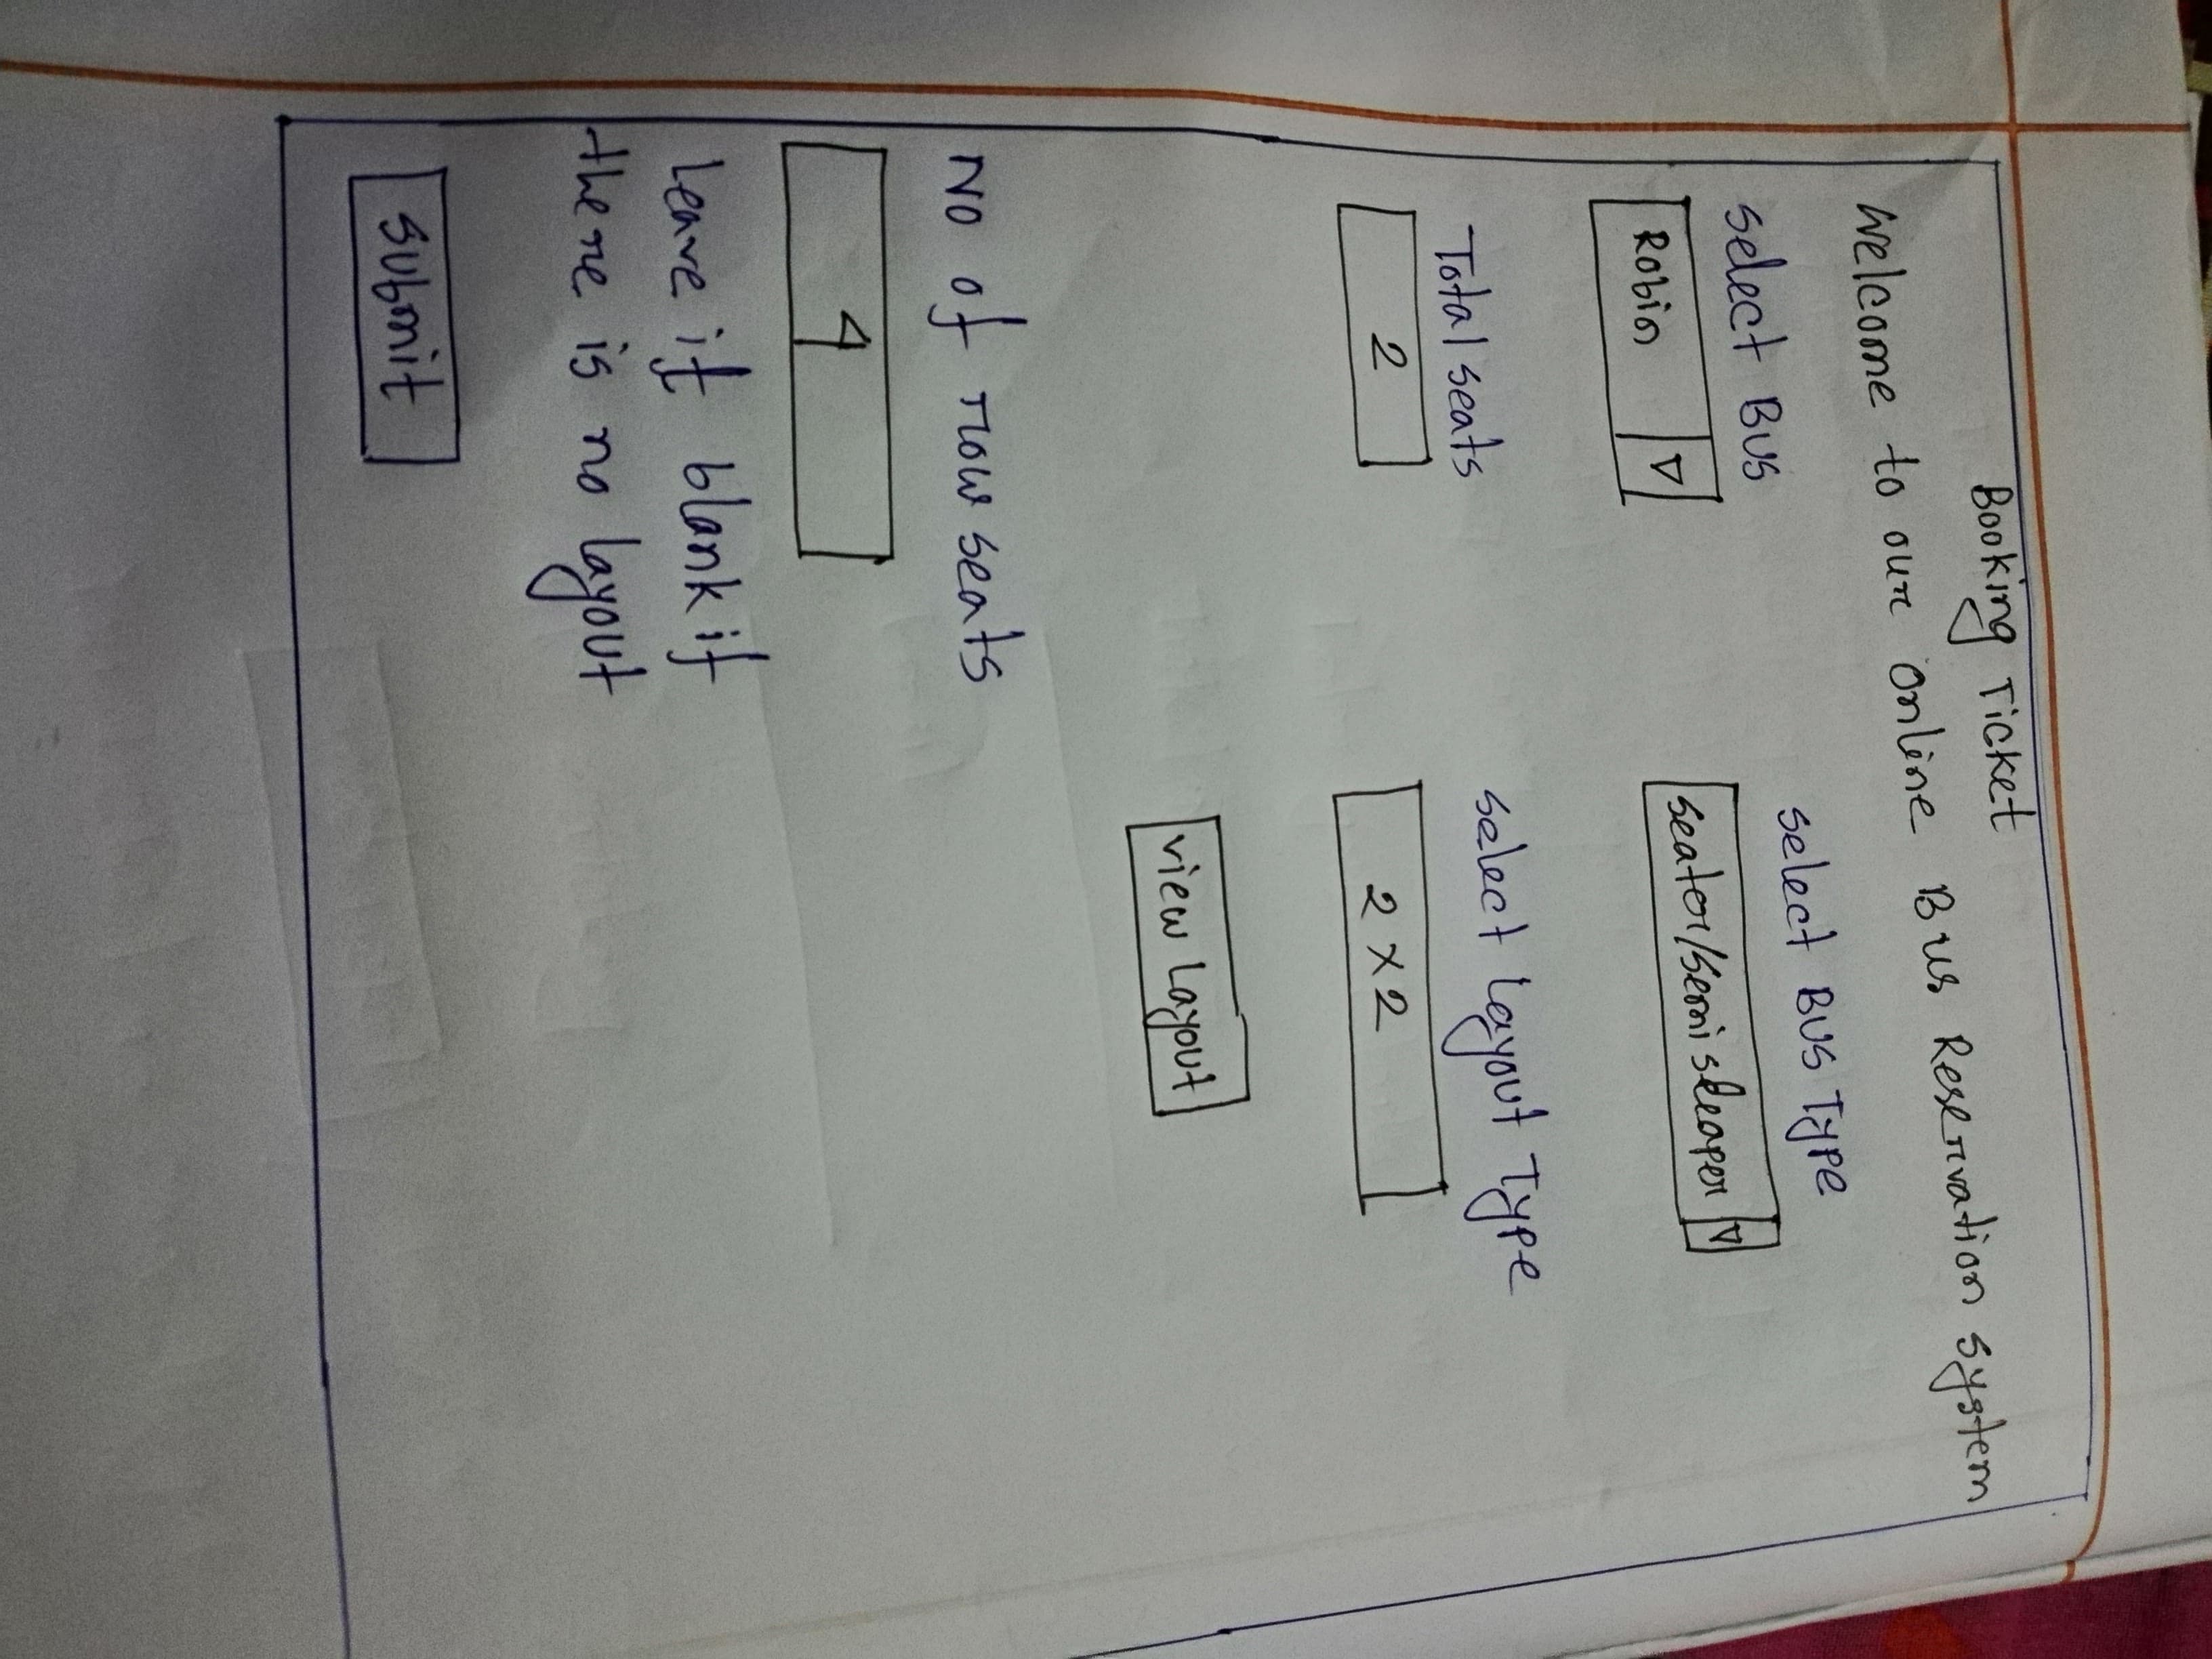 Booking Ticket
Welcome to our Online Bus Reservation system
select Bus
select Bus Type
Robin
seater/semi sleaper
Total seats
select Layout Type
2
2 × 2
view Layout
No of row seats
4
Leave it blank if
there is no layout
submit